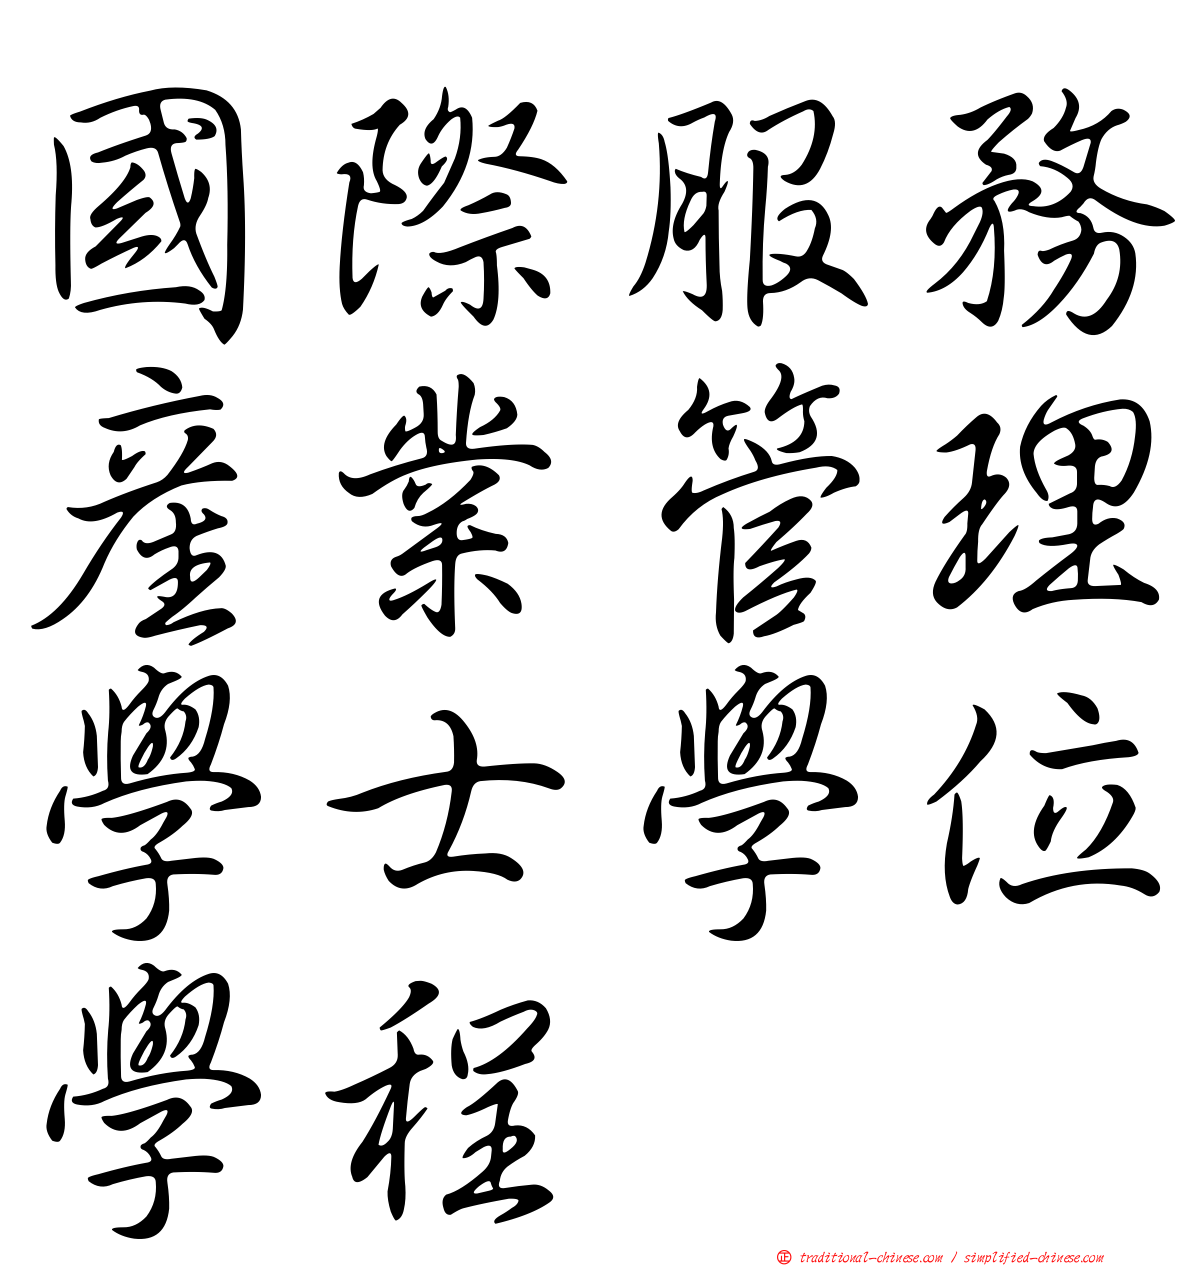 國際服務
產業管理
學士學位
學程
正 traditional-chinese.com / simplified-chinese.com